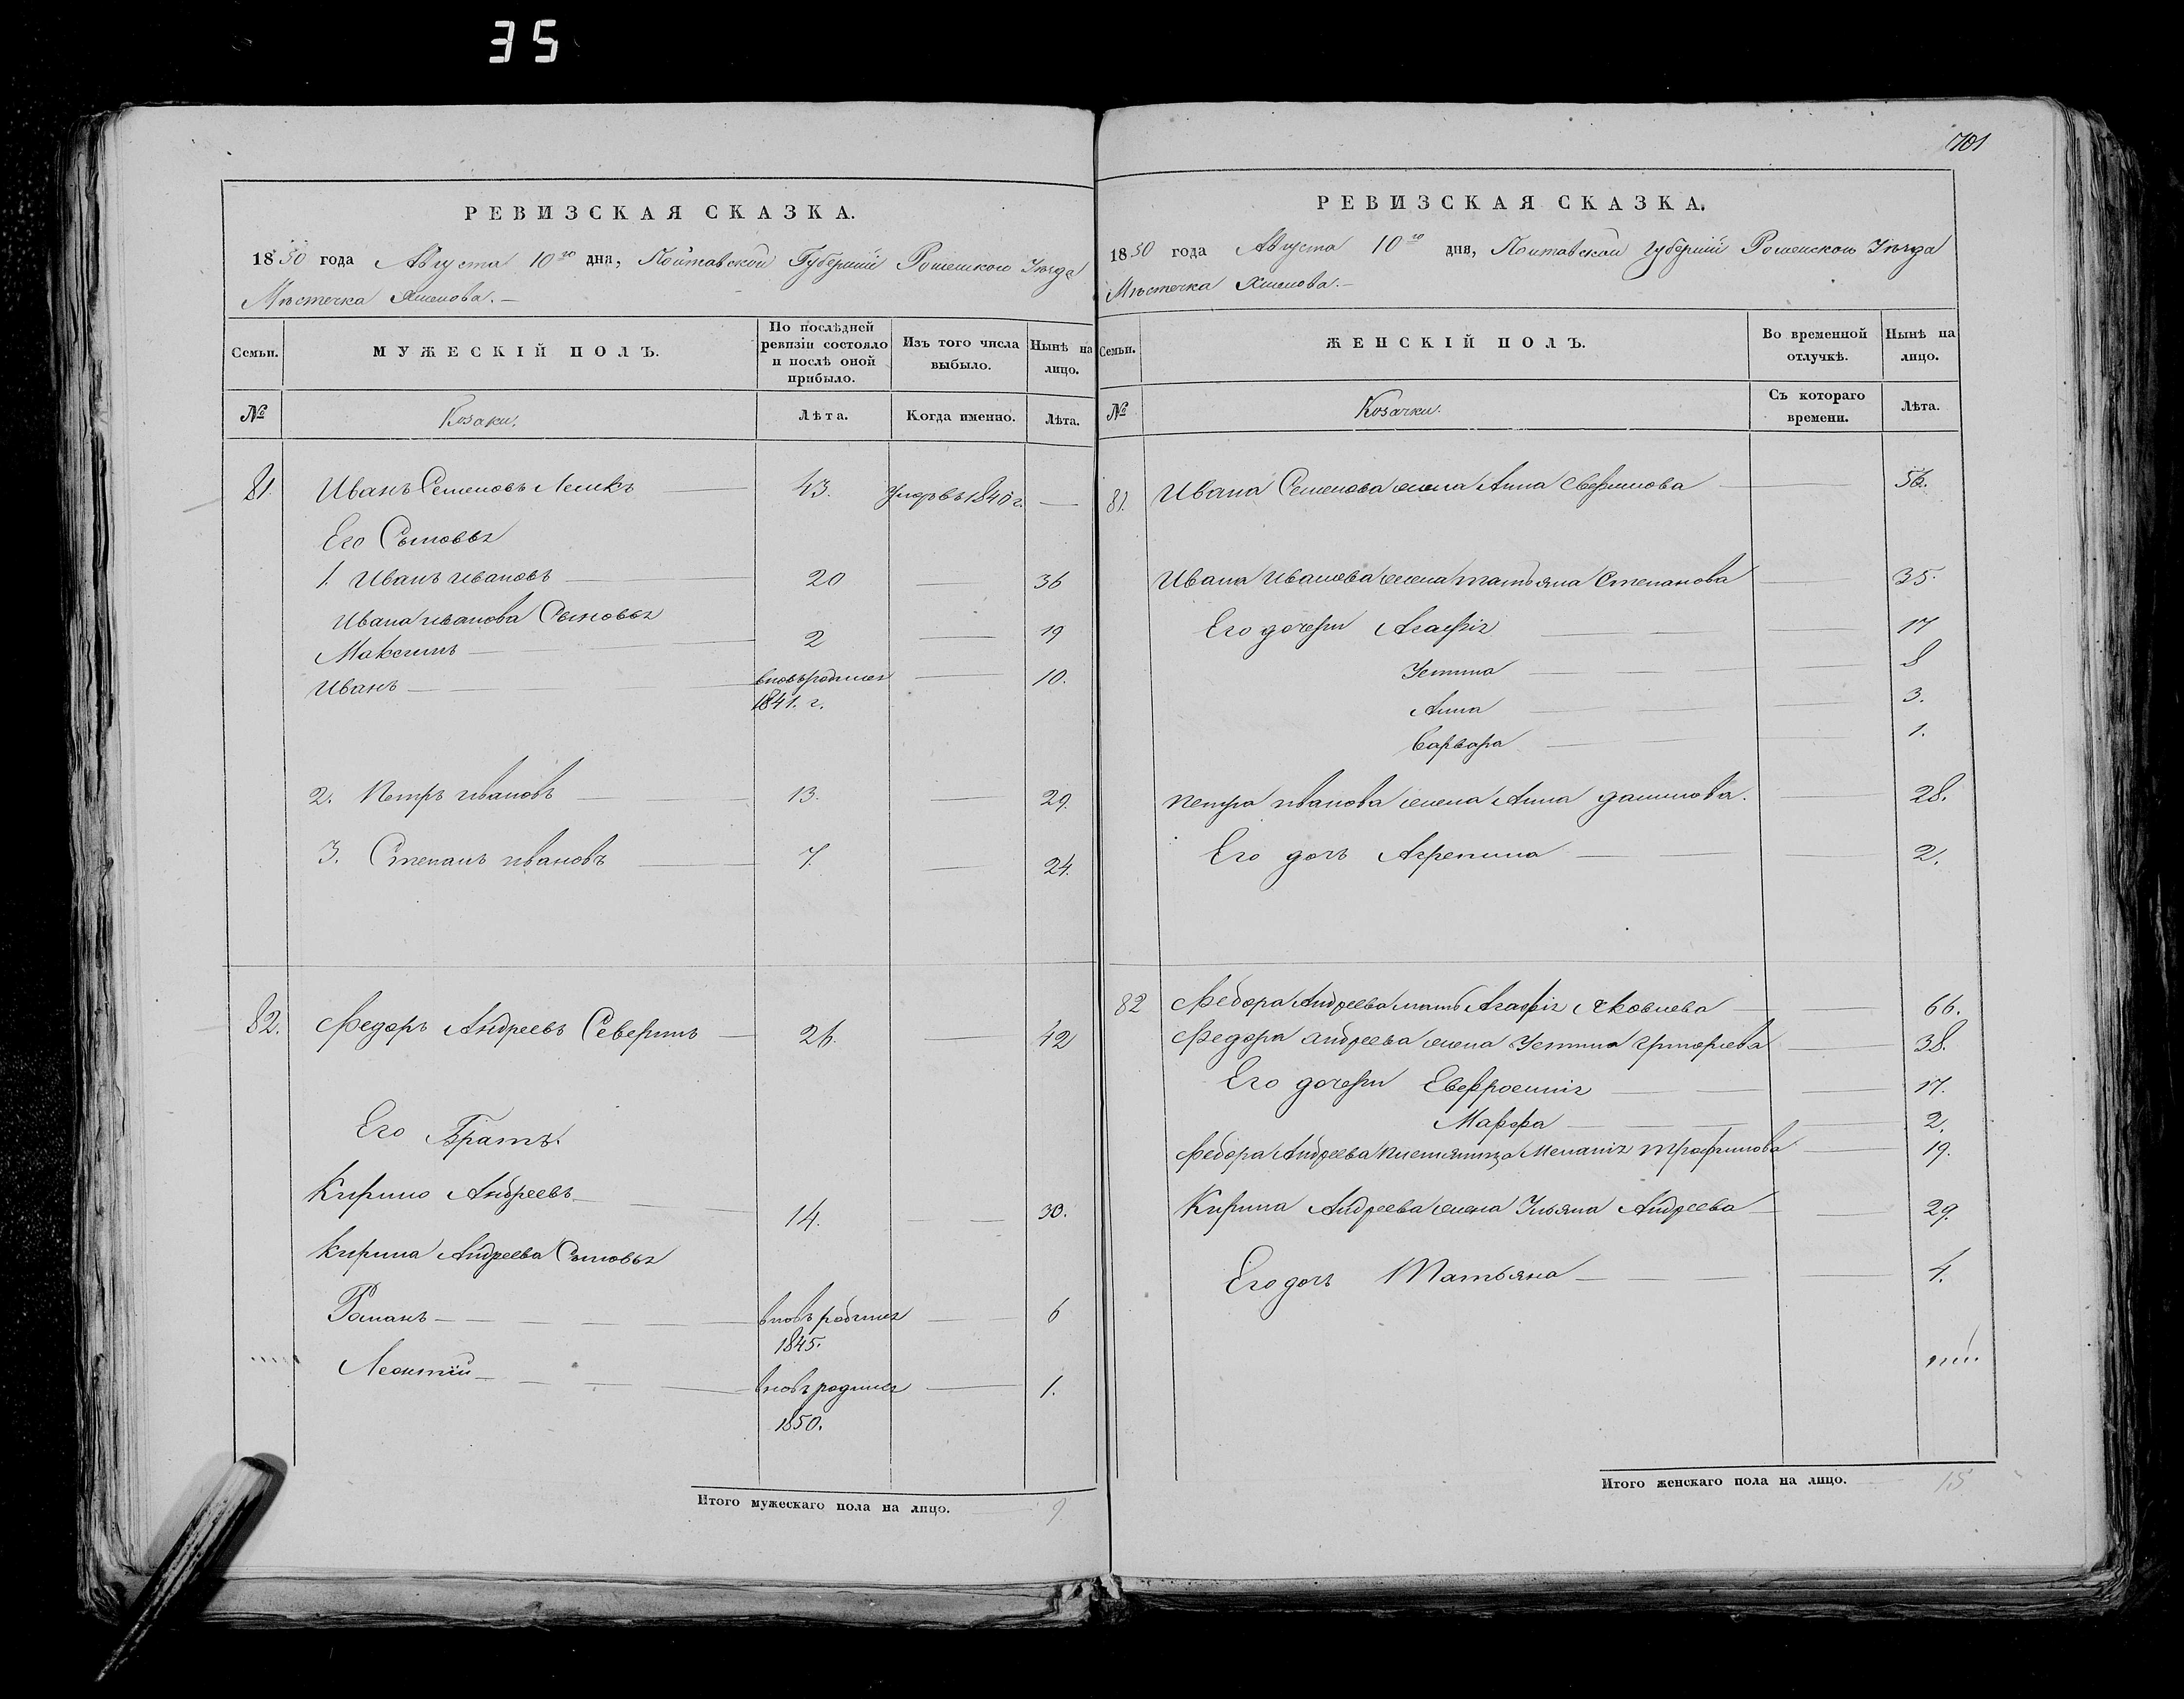 35
701
РЕВИЗСКАЯ СКАЗКА.
1850 года Августа 10го дня, Полтавской Губерніи Роменского Уезда
Мѣстечка Хмелова.
Семьи.
МУЖЕСКІЙ ПОЛЪ.
По послѣдней ревизіи состояло и послѣ оной прибыло.
Изъ того числа выбыло.
Нынѣ на лицо.
№
Козаки.
Лѣта.
Когда именно.
Лѣта.
81. Иванъ Семеновъ 43. умръ въ 1840 г. —
Его Сыновья
1. Иванъ Ивановъ 20 — 36
Ивана Иванова Сыновья
Максимъ 2 — 19
Иванъ вновь родился — 10.
1841. г.
2. Петръ Ивановъ 13. — 29.
3. Степанъ Ивановъ 7. — 24.
82. Федоръ Андреевъ Северинъ 26. — 42
Его Братъ.
Кирило Андреевъ 14. — 30.
Кирила Андреева Сыновья
Романъ вновь родился — 6
1845.
Леонтій вновь родился — 1.
1850.
Итого мужескаго пола на лицо. 9
РЕВИЗСКАЯ СКАЗКА.
1850 года Августа 10го дня, Полтавской Губерніи Роменского Уезда
Мѣстечка Хмелова.
Семьи.
ЖЕНСКІЙ ПОЛЪ.
Во временной отлучкѣ.
Нынѣ на лицо.
№
Козачки.
Съ котораго времени.
Лѣта.
81. Ивана Семенова жена Анна — 56.
Ивана Иванова жена Татьяна Степанова — 35.
Его дочери Агафія — 17
Устина — 8
Анна — 3.
Варвара — 1.
Петра Иванова жена Анна Данилова. — 28.
Его дочь Агрепина — 2.
82 Федора Андреева мать Агафія Яковлева — 66.
Федора Андреева жена Устина Григорьева — 38.
Его дочери Евфросинія — 17.
Марфа — 2.
Федора Андреева племянница Меланія Трофимова — 19.
Кирила Андреева жена Ульяна Андреева — 29.
Его дочь Татьяна — 4.
Итого женскаго пола на лицо. 15